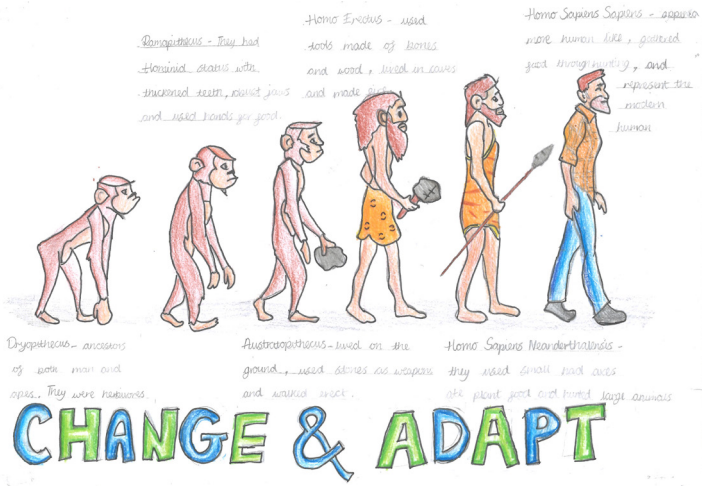 Ramapithecus - They had
Hominid status with
thickened teeth, robust jaws
and used hands for food.
Homo Erectus - used
tools made of bones
and wood, lived in caves
and made
Homo Sapiens Sapiens - appeared
more human like, gathered
food through hunting, and
represent the
modern
human
Dryopithecus - ancestors
of both man and
apes. They were herbivores.
Australopithecus - lived on the
ground, used stones as weapons
and walked erect.
Homo Sapiens Neanderthalensis -
they used small hand axes
ate plant food and hunted large animals
CHANGE & ADAPT